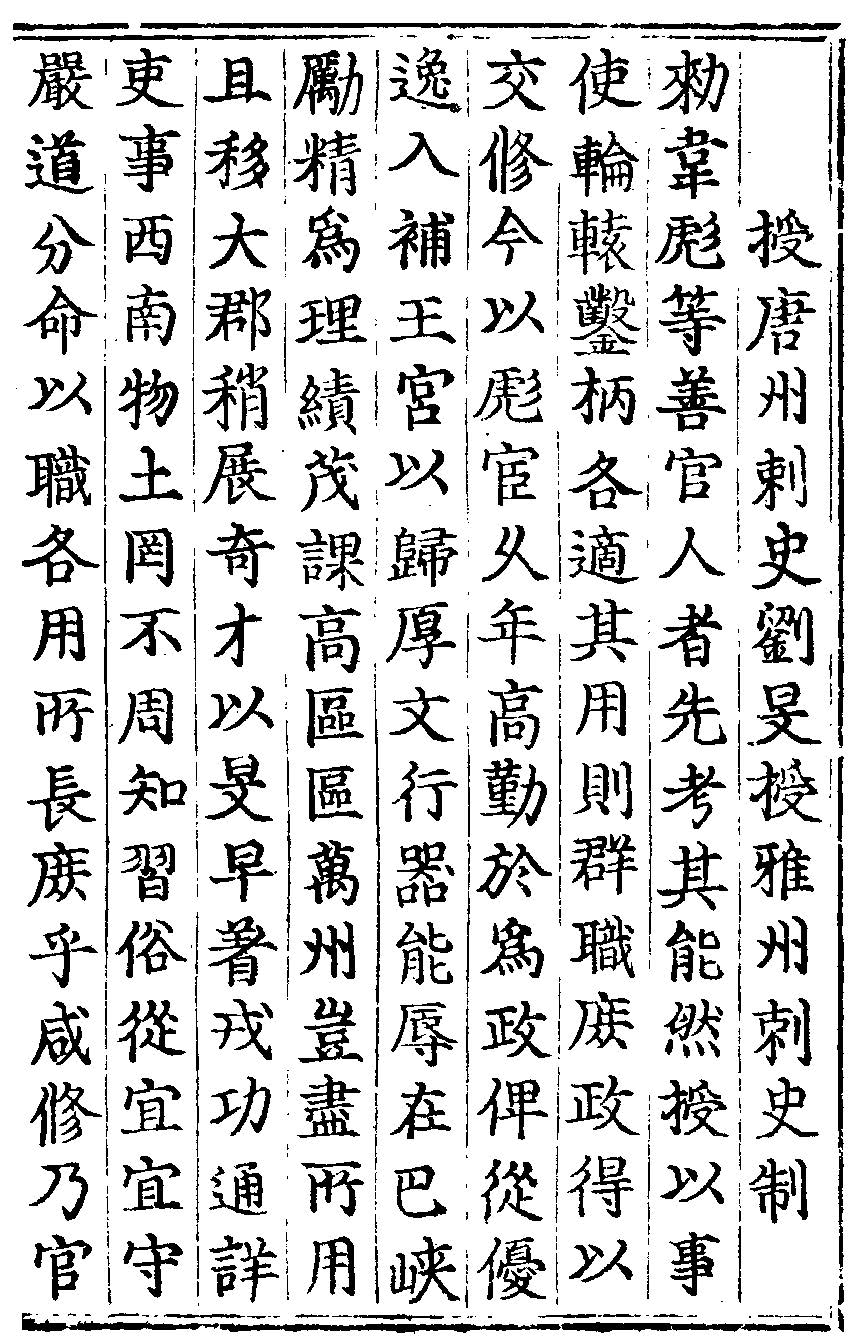 授唐州刺史劉旻授雅州刺史制
勑韋彪等善官人者先考其能然授以事
使輪轅鑿枘各適其用則群職庶政得以
交修今以彪宦久年高勤於爲政俾從優
逸入補王宮以歸厚文行器能辱在巴峽
勵精爲理績茂課高區區萬州豈盡所用
且移大郡稍展奇才以旻早著戎功通詳
吏事西南物土罔不周知習俗從宜宜守
嚴道分命以職各用所長庶乎咸修乃官